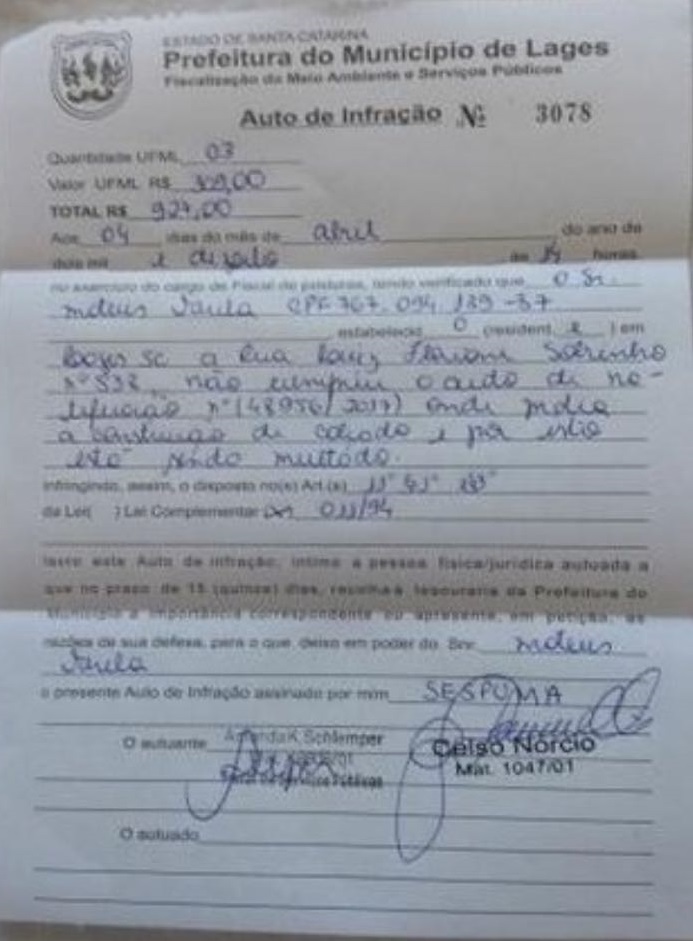 ESTADO DE SANTA CATARINA
Prefeitura do Município de Lages
Fiscalização do Meio Ambiente e Serviços Públicos
Auto de Infração Nº 3078
Quantidade UFML 03
Valor UFML R$ 309,00
TOTAL R$ 927,00
Aos 04 dias do mês de abril do ano de
dois mil e dezoito às horas
no exercício do cargo de Fiscal de posturas, tendo verificado que o Sr.
CPF 767.094.139-37
estabelecid o (resident e ) em
Lages SC a Rua Sobrinho
nº 532, não cumpriu o auto de no-
tificação nº (48956/2017) onde
a construção de calçada e por isto
está sendo multado.
infringindo, assim, o disposto no(s) Art.(s)
da Lei( ) Lei Complementar 011/94
lavro este Auto de infração, intimo a pessoa física/jurídica autuada a
que no prazo de 15 (quinze) dias, recolha a tesouraria da Prefeitura do
Município a importância correspondente ou apresente, em petição, as
razões de sua defesa, para o que, deixo em poder do Snr.
o presente Auto de Infração assinado por mim SESPUMA
O autuante Amanda K Schlemper
Celso Norcio
Mat. 1047/01
Serviços Públicos
O autuado